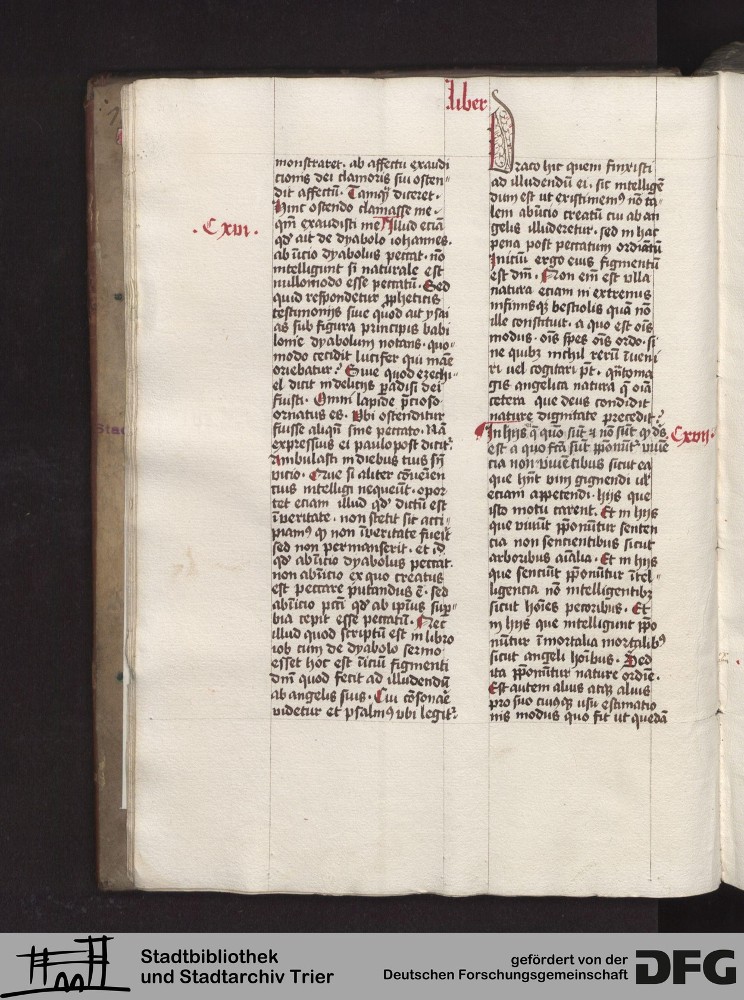 liber
monstraret. ab affectu exaudi
cionis dei clamoris sui osten
dit affectū. Tamq̄ diceret.
Hinc ostendo clamasse me.
qm̄ exaudisti me Illud eciā
.Cxvi.
qd' ait de dyabolo iohannes.
ab īicio dyabolus peccat. nō
intelligunt si naturale est
nullomodo esse peccatū. Sed
quid respondetur ꝓpheticis
testimonijs siue quod ait ysai
as sub figura principis babi
lonie dyabolum notans. quo
modo cecidit lucifer qui mane
oriebatur? Siue quod ezechi
el dicit in delicijs ꝑadisi dei
fuisti. Omni lapide p̄cioso
ornatus es. Vbi ostenditur
fuisse aliqn̄ sine peccato. Nā
expressius ei paulopost dicit᷑.
Ambulasti in diebus tuis sn̄
vicio. Que si aliter ꝯueniēn
cius intelligi nequeūt. opor
tet eciam illud qd' dictū est
ī veritate. non stetit sic acci
piamꝰ ꝙ non ī veritate fuerit
sed non permanserit. et id
qd' ab īicio dyabolus peccat.
non ab īicio ex quo creatus
est peccare putandus ē. sed
ab īicio pctī qd' ab ip̄ius suꝑ
bia cepit esse peccatū. Nec
illud quod scriptū est in libro
iob cum de dyabolo sermo
esset hoc est īiciū figmenti
dnī quod fecit ad illudendū
ab angelis suis. Cui cōsonare
videtur et psalmꝰ vbi legit᷑.
Draco hic quem finxisti
ad illudendū ei. sic intelligē
dum est ut existimemꝰ nō ta
lem ab īicio creatū cui ab an
gelis illuderetur. sed in hac
pena post peccatum ordiatū
Iniciū ergo eius figmentū
est dnī. Non em̄ est vlla
natura eciam in extremis
infimisqꝫ bestiolis quā nō
ille constituit. a quo est oīs
modus. oīs spēs oīs ordo. si
ne quibꝫ nichil rerū īueni
ri vel cogitari pt̄. qn̄toma
gis angelica natura q̄ oīa
cetera que deus condidit
nature dignitate precedit?
In hijs q̄ quo sūt ⁊ nō sūt ꝙ ds̄
Cxvij.
est a quo fcā sūt p̄ponūt᷑ viuē
cia non viuētibus sicut ea
que hn̄t vim gignendi ul'
eciam appetendi. hijs que
isto motu carent. Et in hijs
que viuūt p̄ponūtur senten
cia non sencientibus sicut
arboribus aīalia. Et in hijs
que senciūt p̄ponūtur ītel
ligencia nō intelligentibꝫ
sicut hoīes pecoribus. Et
in hijs que intelligunt p̄po
nūtur īmortalia mortalibꝰ
sicut angeli hoībus. Sed
ita p̄ponūtur nature ordīe.
Est autem alius atqꝫ alius
pro suo cuiqꝫ usu estimatio
nis modus quo fit ut quedā
Stadtbibliothek
und Stadtarchiv Trier
gefördert von der
Deutschen Forschungsgemeinschaft
DFG